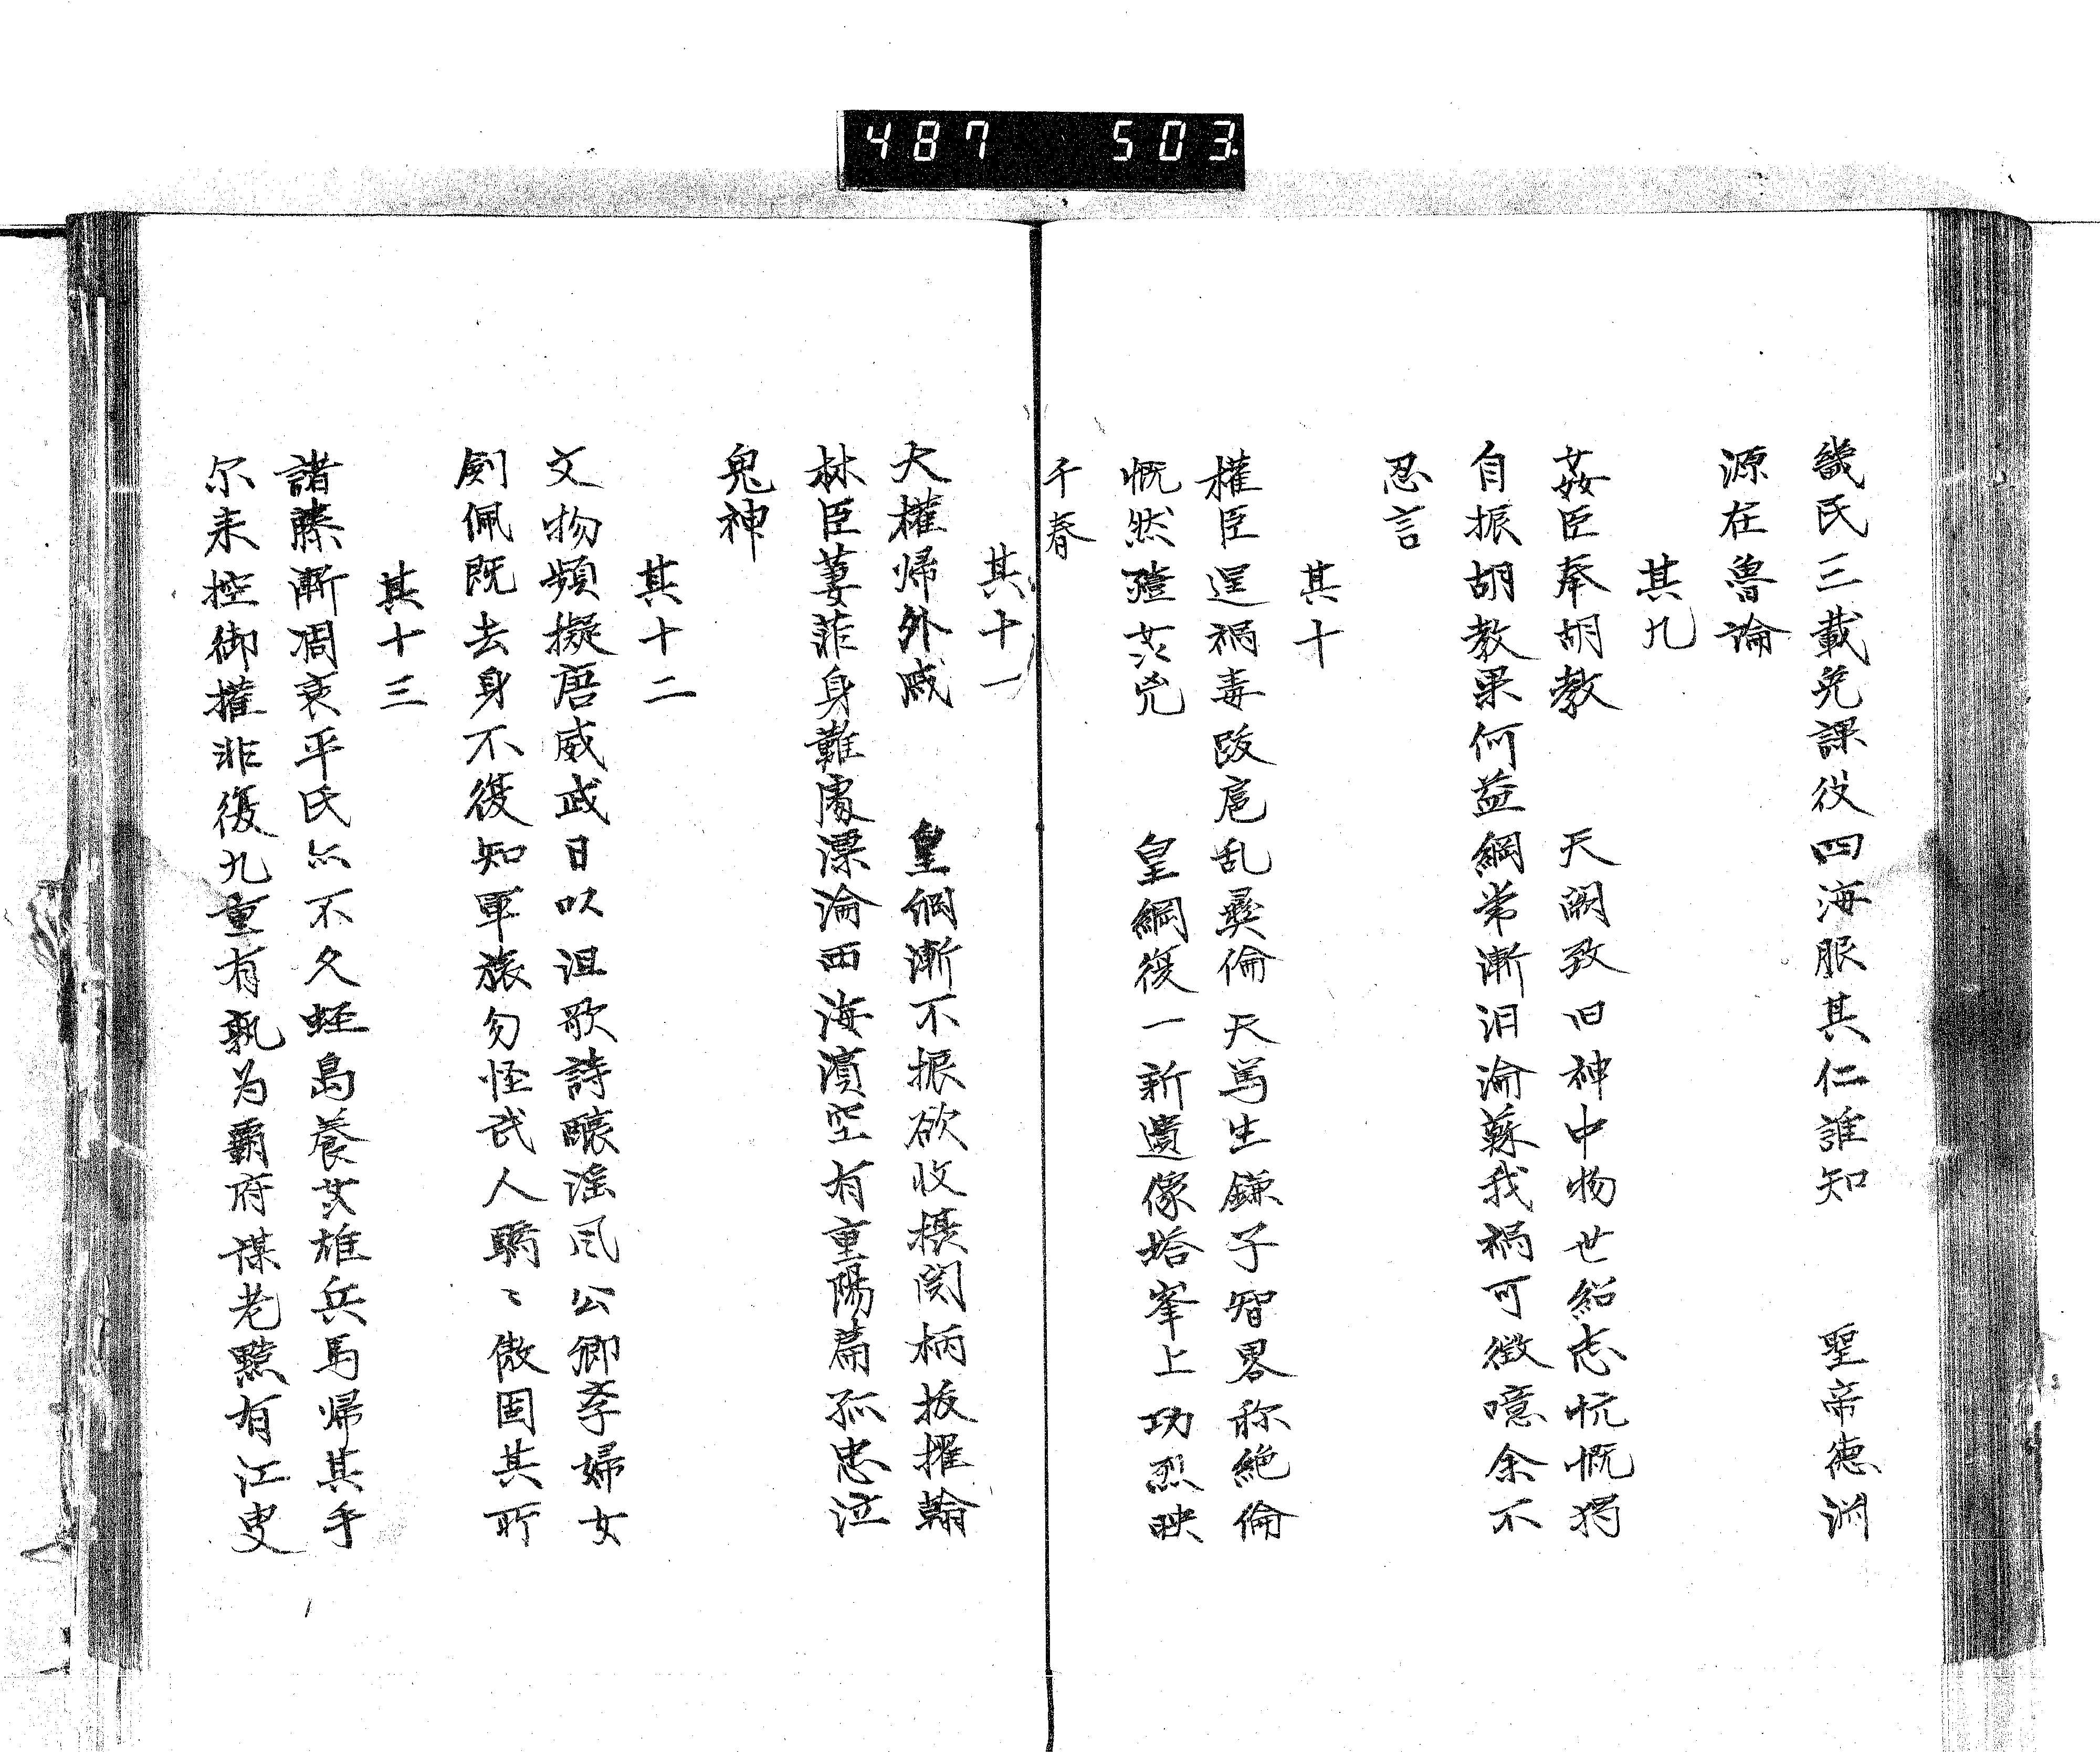 487 503
幾氏三載免課役四海服其仁誰知 聖帝德淵
源在魯論
其九
姦臣奉胡教 天闕致旧神中物世紹志忼慨獨
自振胡教果何益綱常漸汨淪蘇我禍可徴噫余不
忍言
其十
權臣逞禍毒跋扈乱彝倫天篤生鎌子智畧称絶倫
慨然殪元兇 皇綱復一新遺像塔峯上功烈映
千春
其十一
大權帰外戚 皇綱漸不振欲收摂関柄抜擢翰
林臣萋菲身難處漂淪西海濵空有重陽篇孤忠泣
鬼神
其十二
文物頻擬唐威武日以沮歌詩釀滛风公卿孝婦女
劍佩既去身不復知軍旅勿怪武人驕〻傲固其所
其十三
諸藤漸凋衰平氏亦不久蛭島養英雄兵馬帰其手
尔来控御權非復九重有孰为覇府謀老黠有江叟